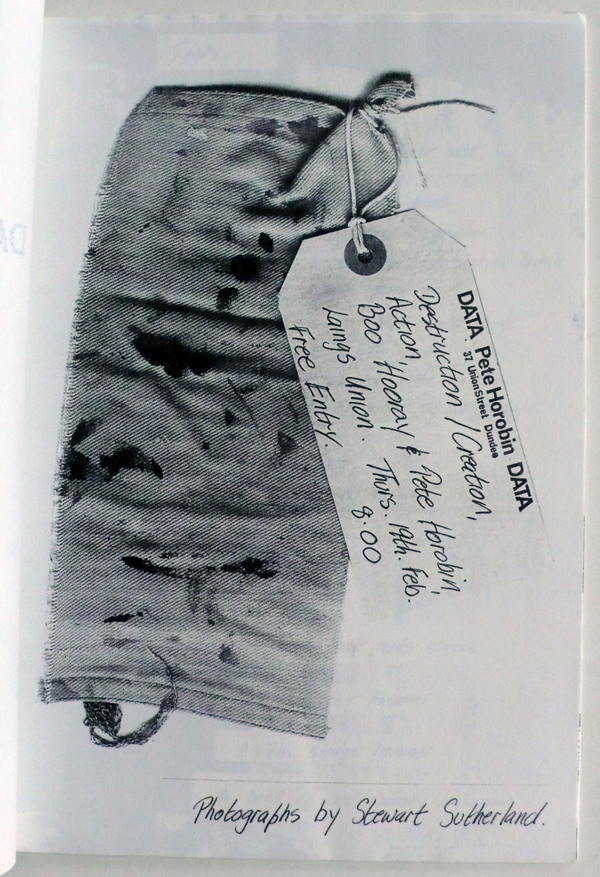 DATA Pete Horobin DATA
37 Union Street Dundee
Destruction / Creation,
Action,
Boo Hooray & Pete Horobin,
Laings Union. Thurs. 19th. Feb.
Free Entry. 8.00
Photographs by Stewart Sutherland.